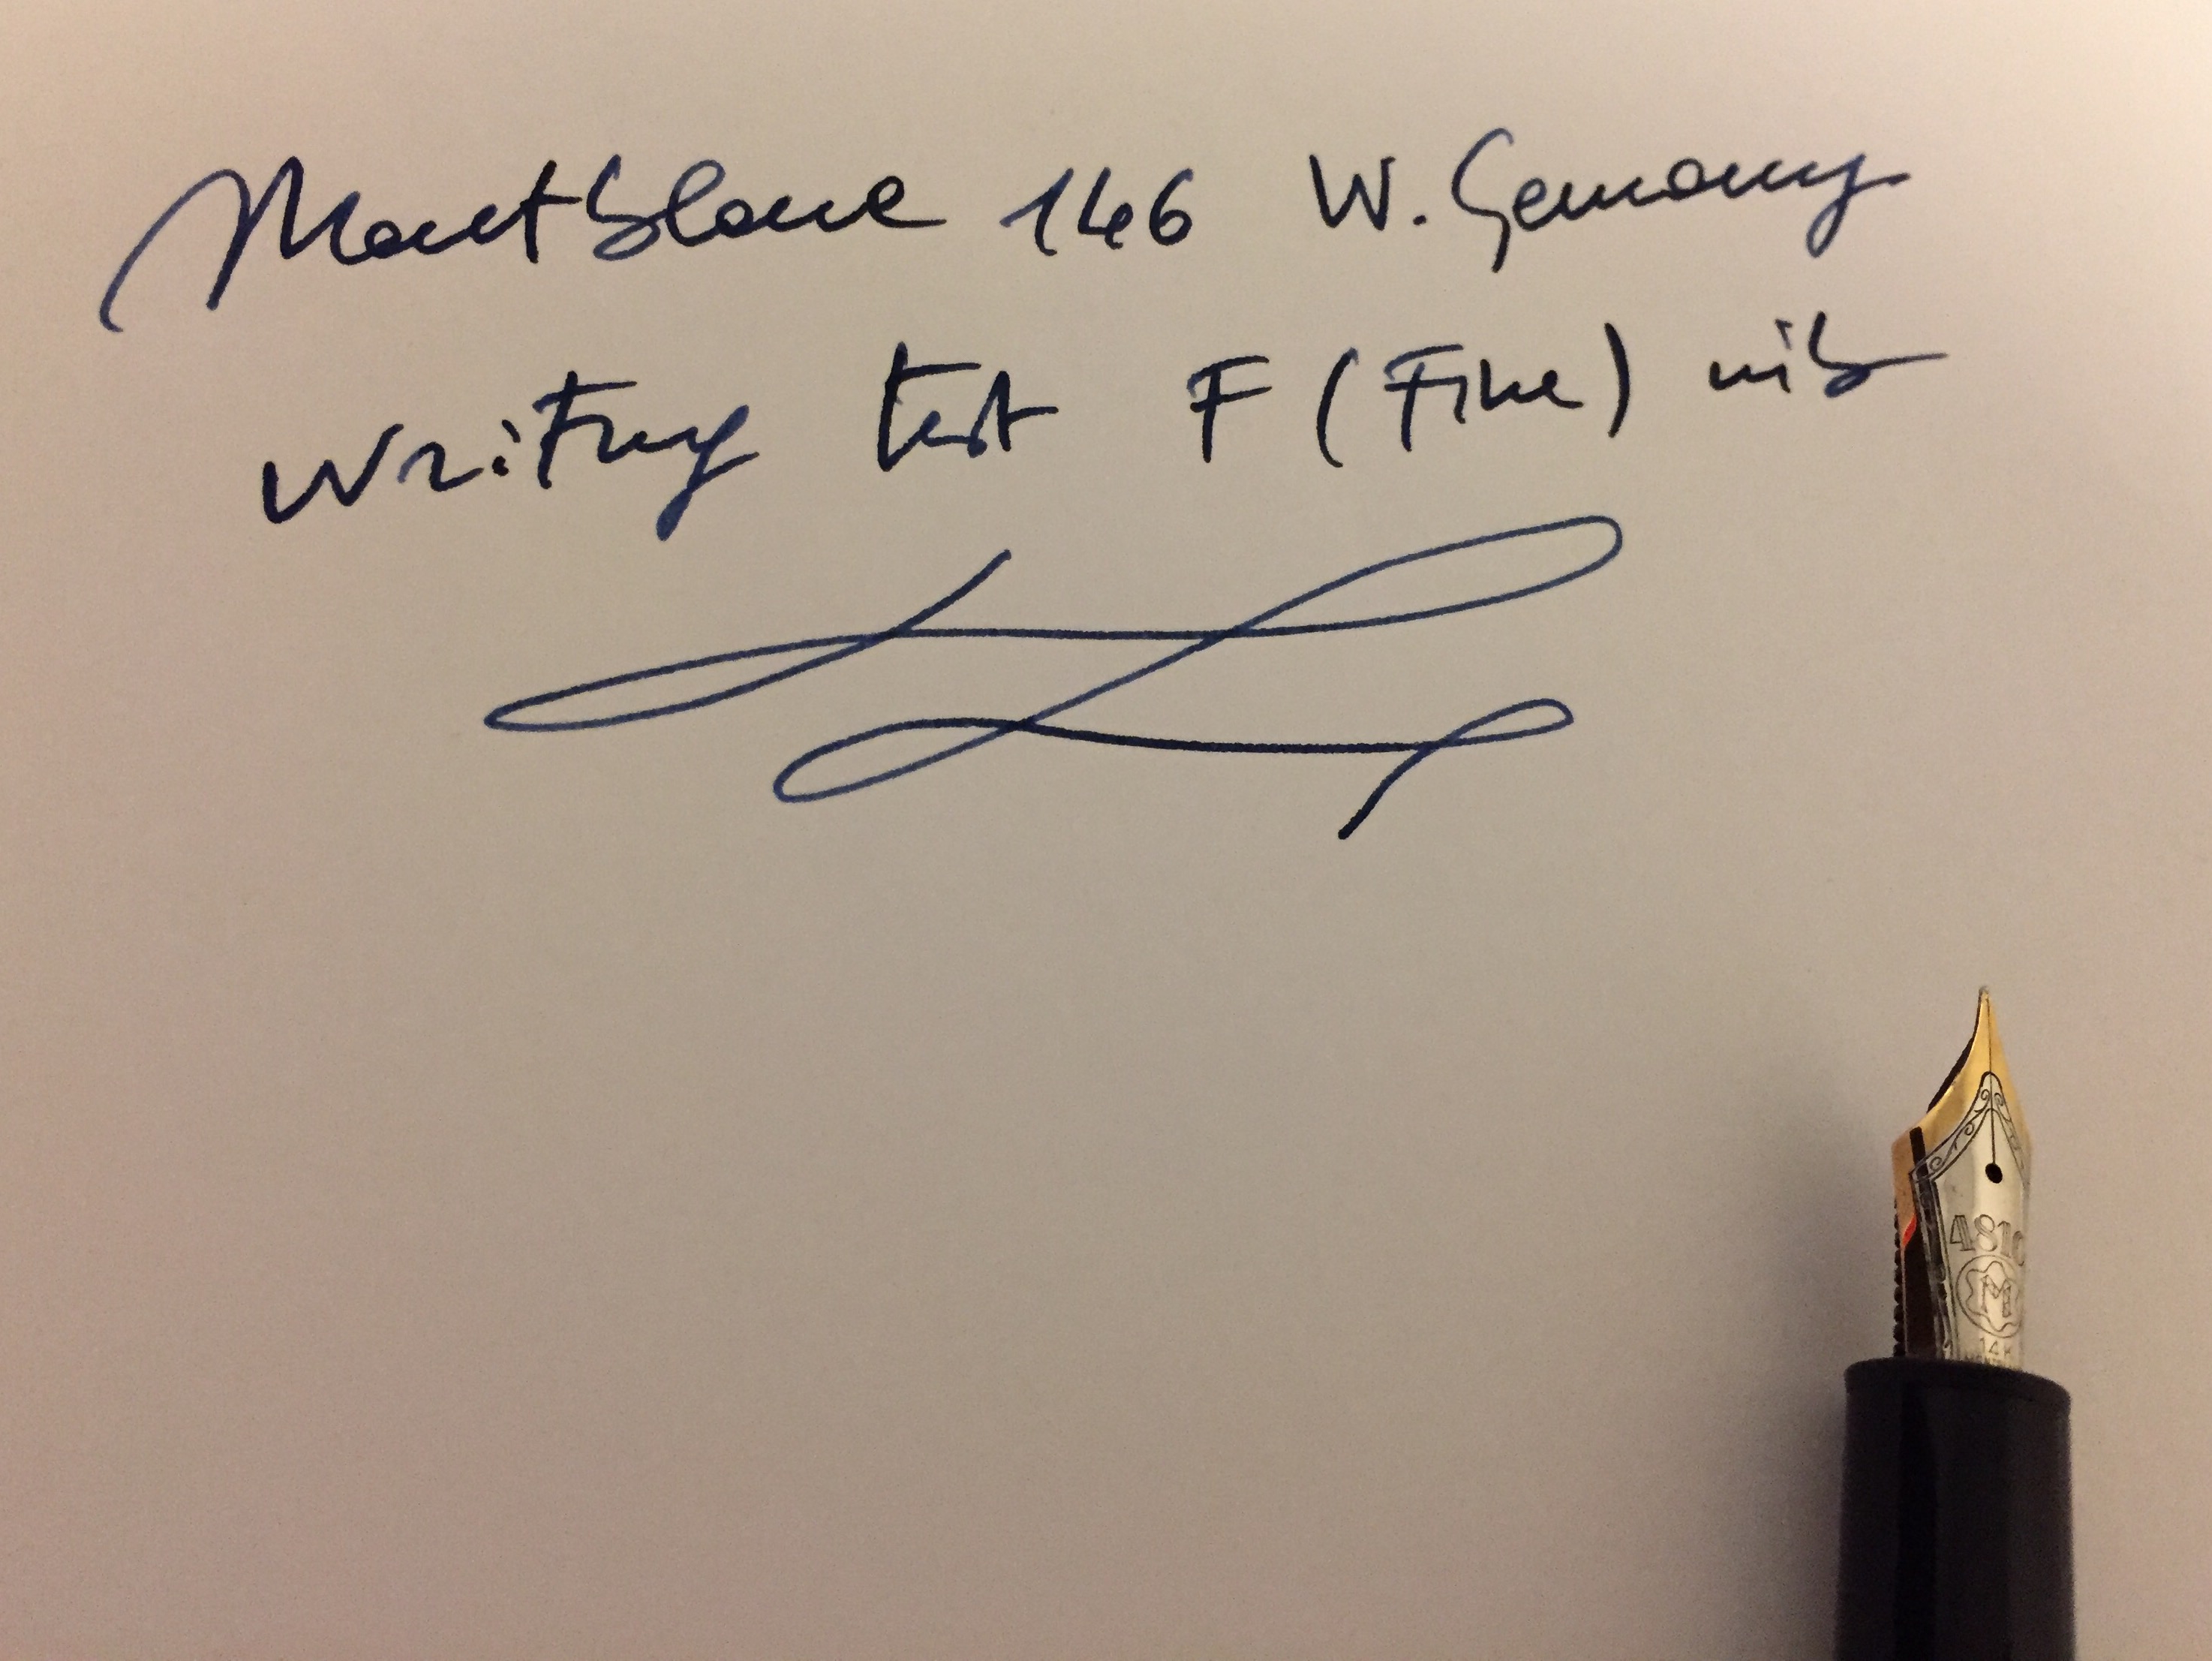 Montblanc 146 W. Germany
Writing test F (Fine) nib
4810
M
14K